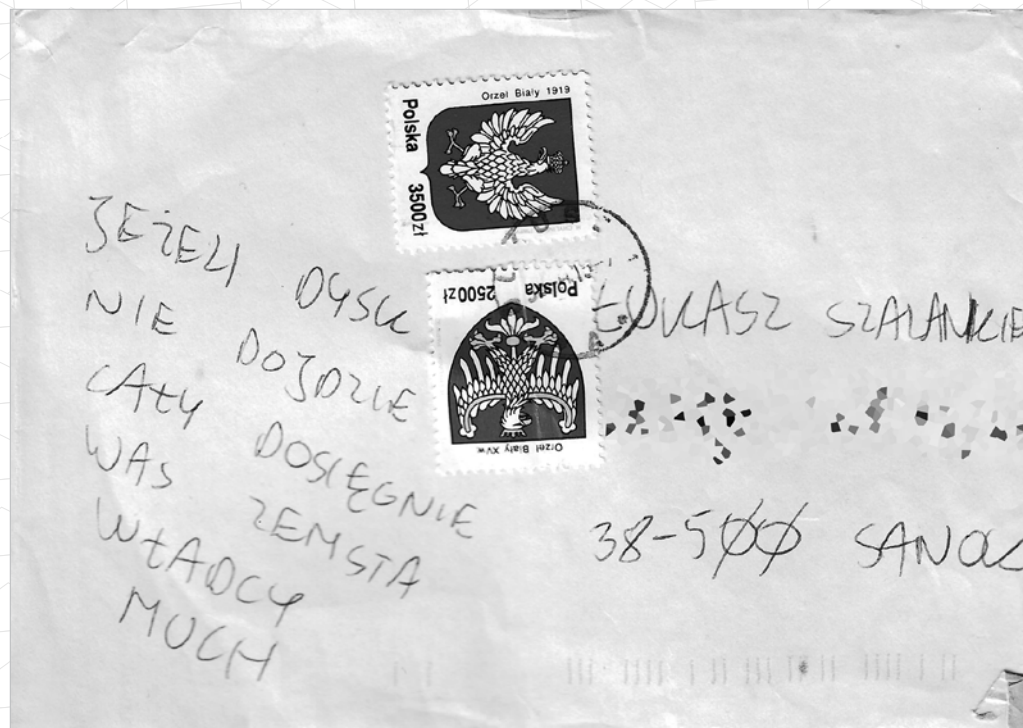 Orzeł Biały 1919
Polska 3500zł
Polska 2500zł
Orzeł Biały XVw.
JEŻELI DYSK
NIE DOJDZIE
CAŁY DOSIĘGNIE
WAS ZEMSTA
WŁADCY
MUCH
ŁUKASZ SZALANKIE
38-500 SANOK